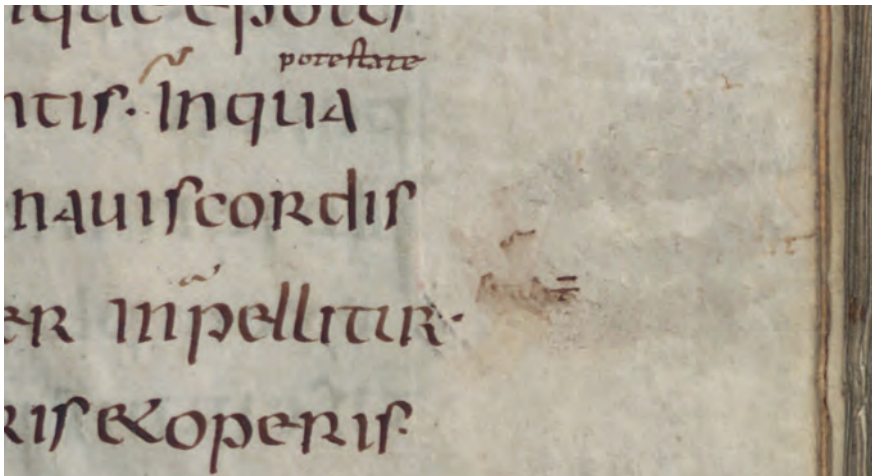 ique epoti
potestate
ntis. Inqua
nauiscordis
er inpellitir.
ris &operis.